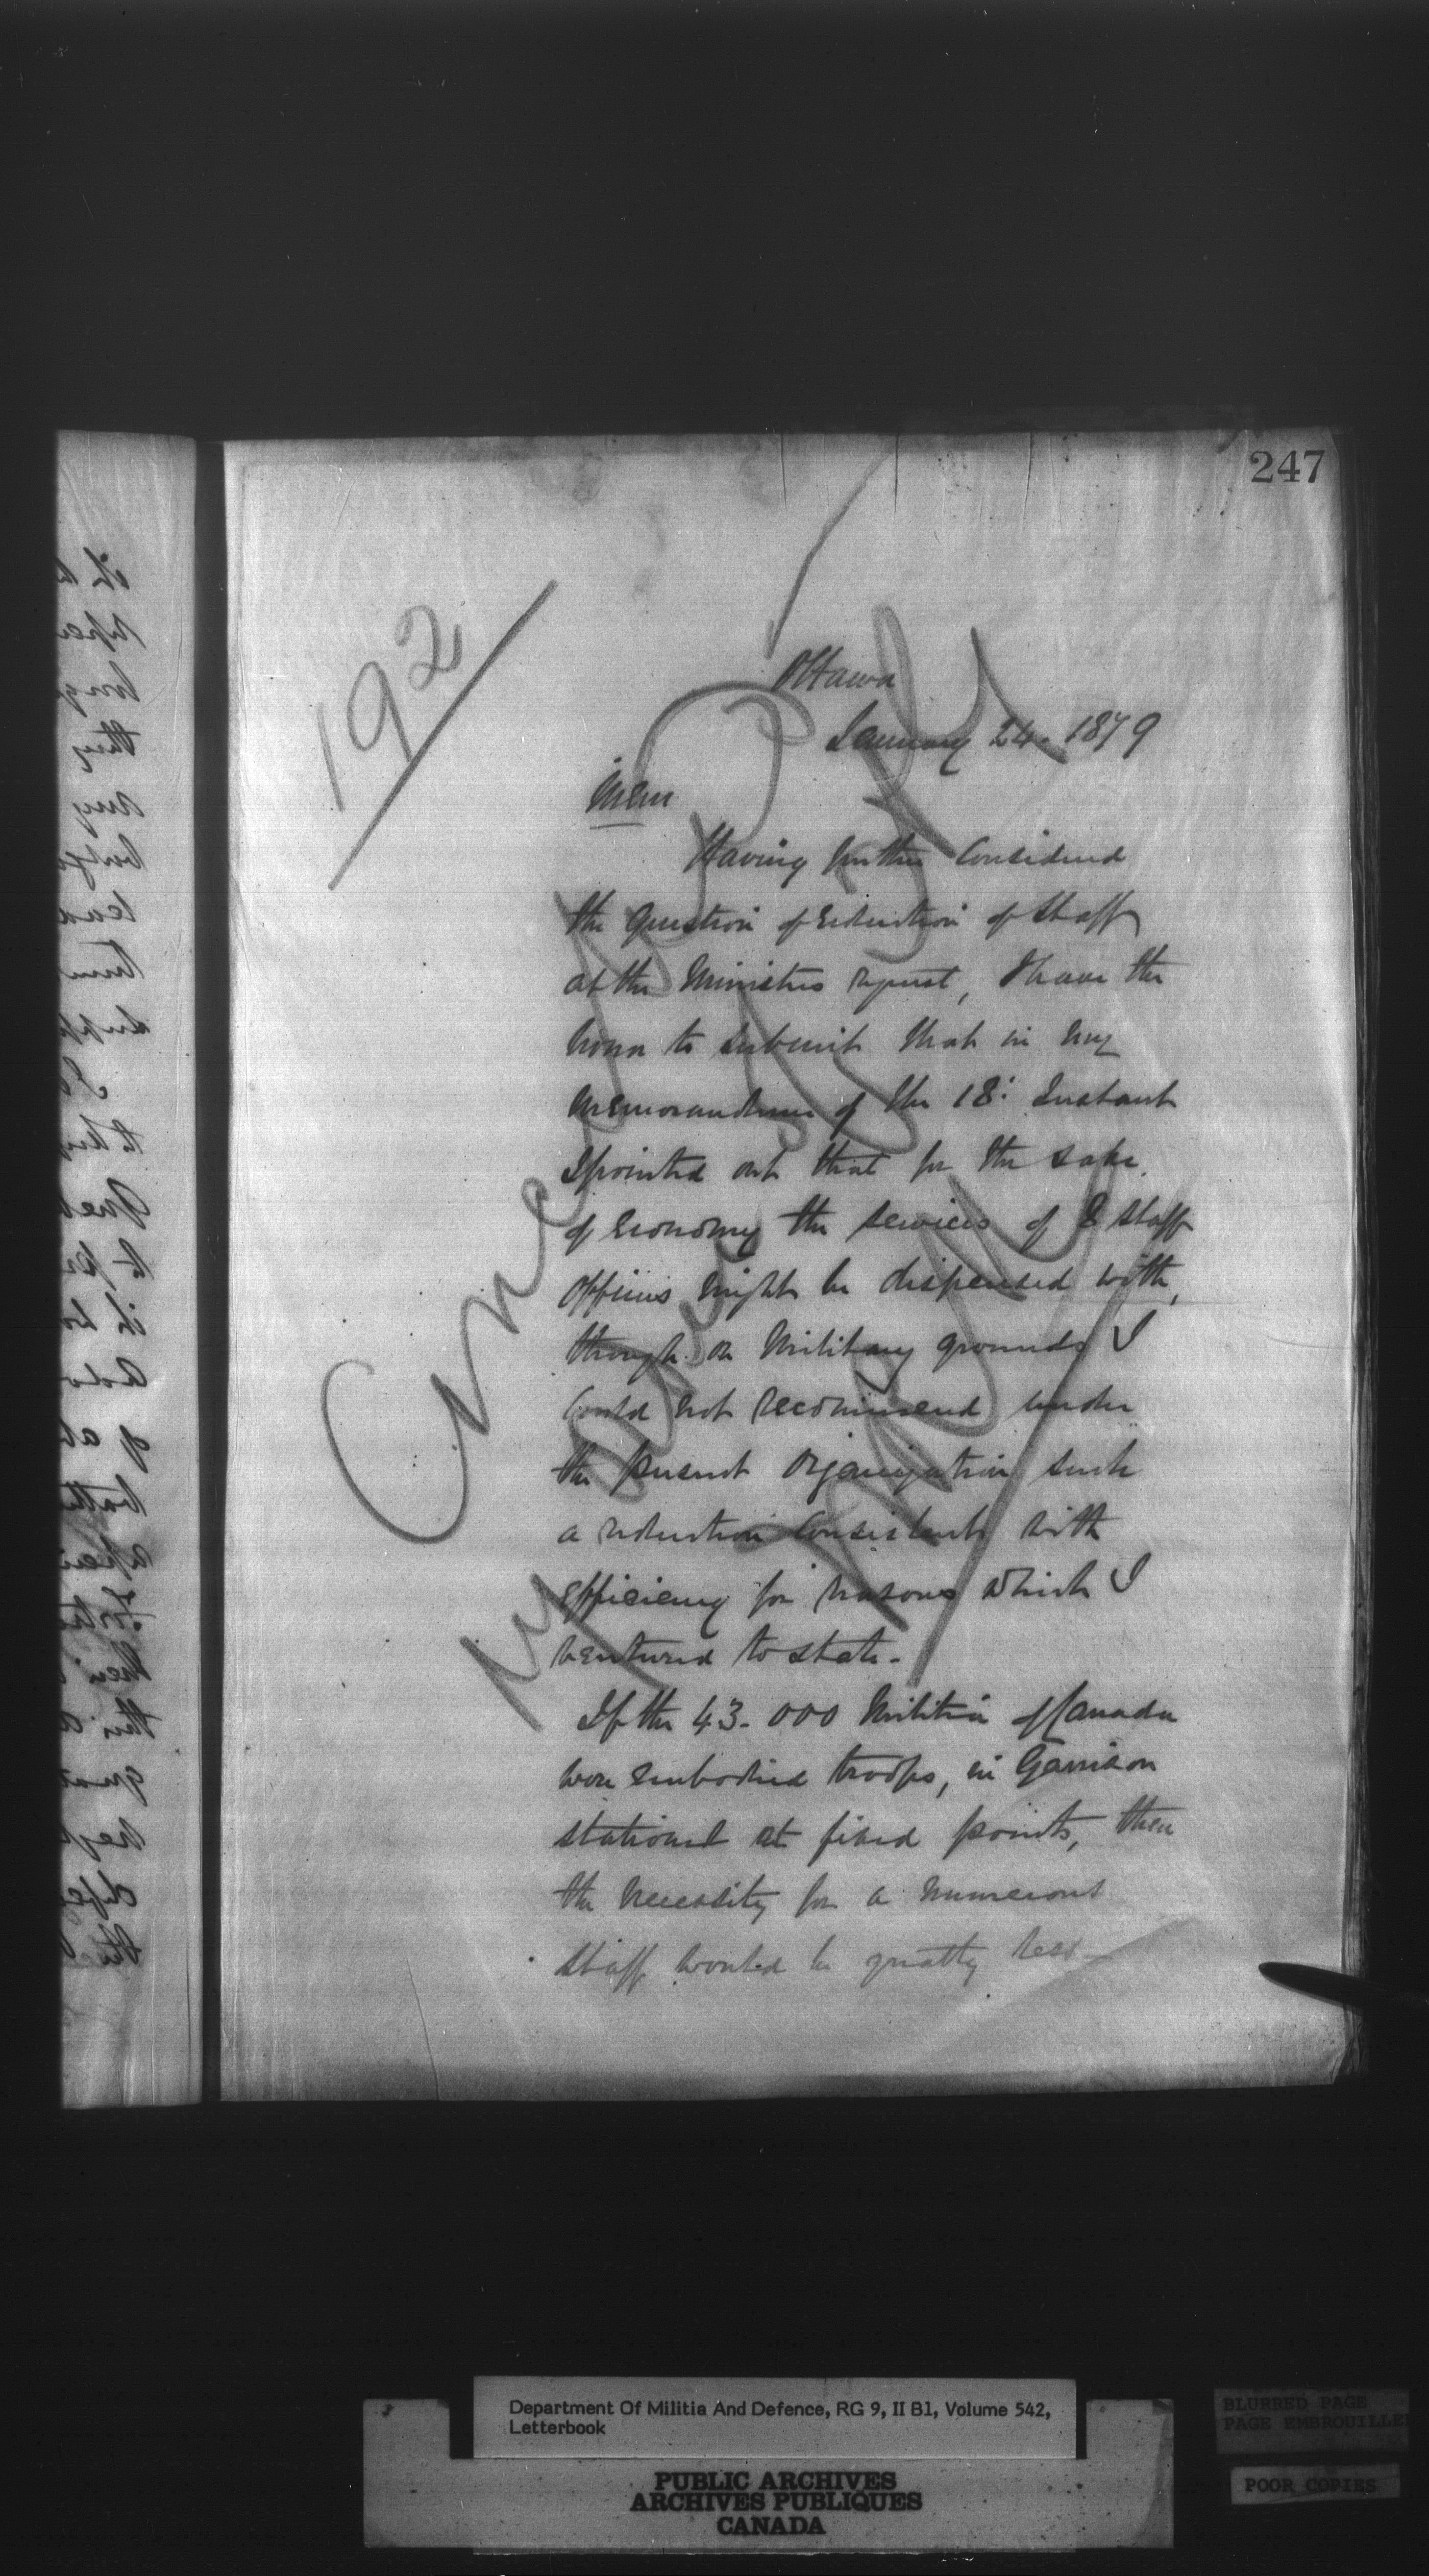 247
192
Ottawa
January 24. 1879
Mem
Having further Considered
the Question of reduction of Staff
at the Ministers request, I have the
honor to submit that in my
Memorandum of the 18: Instant
I pointed out that for the sake
of Economy the services of 8 Staff
Officers might be dispensed with,
though on Military grounds I
Could not Recommend under
the present Organization such
a reduction Consistent with
Efficiency for reasons which I
ventured to state.
If the 43.000 Militia of Canada
were Embodied troops, in Garrison
stationed at fixed points, then
the Necessity for a numerous
staff would be greatly less
Department Of Militia And Defence, RG 9, II B1, Volume 542,
Letterbook
PUBLIC ARCHIVES
ARCHIVES PUBLIQUES
CANADA
BLURRED PAGE
PAGE EMBROUILLE
POOR COPIES